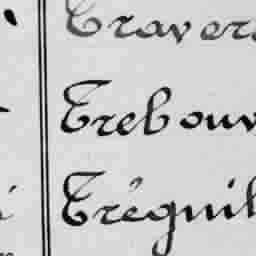 Travers
Trebouv
Tréguil